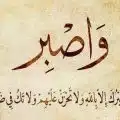 وَاصْبِر
صَبْرُكَ إِلَّا بِاللَّهِ وَلَا تَحْزَنْ عَلَيْهِمْ وَلَا تَكُ فِي